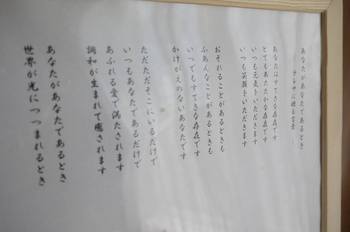 あなたがあなたであるとき
あなたはすてきな存在です
とてもあたたかな存在です
いつも元気をいただきます
いつも笑顔をいただきます
おそれることがあるときも
ふあんなことがあるときも
いつでもすてきな存在です
かけがえのないあなたです
ただただそこにいるだけで
いつもあなたであるだけで
あふれる愛で満たされます
調和が生まれて癒されます
あなたがあなたであるとき
世界が光につつまれるとき